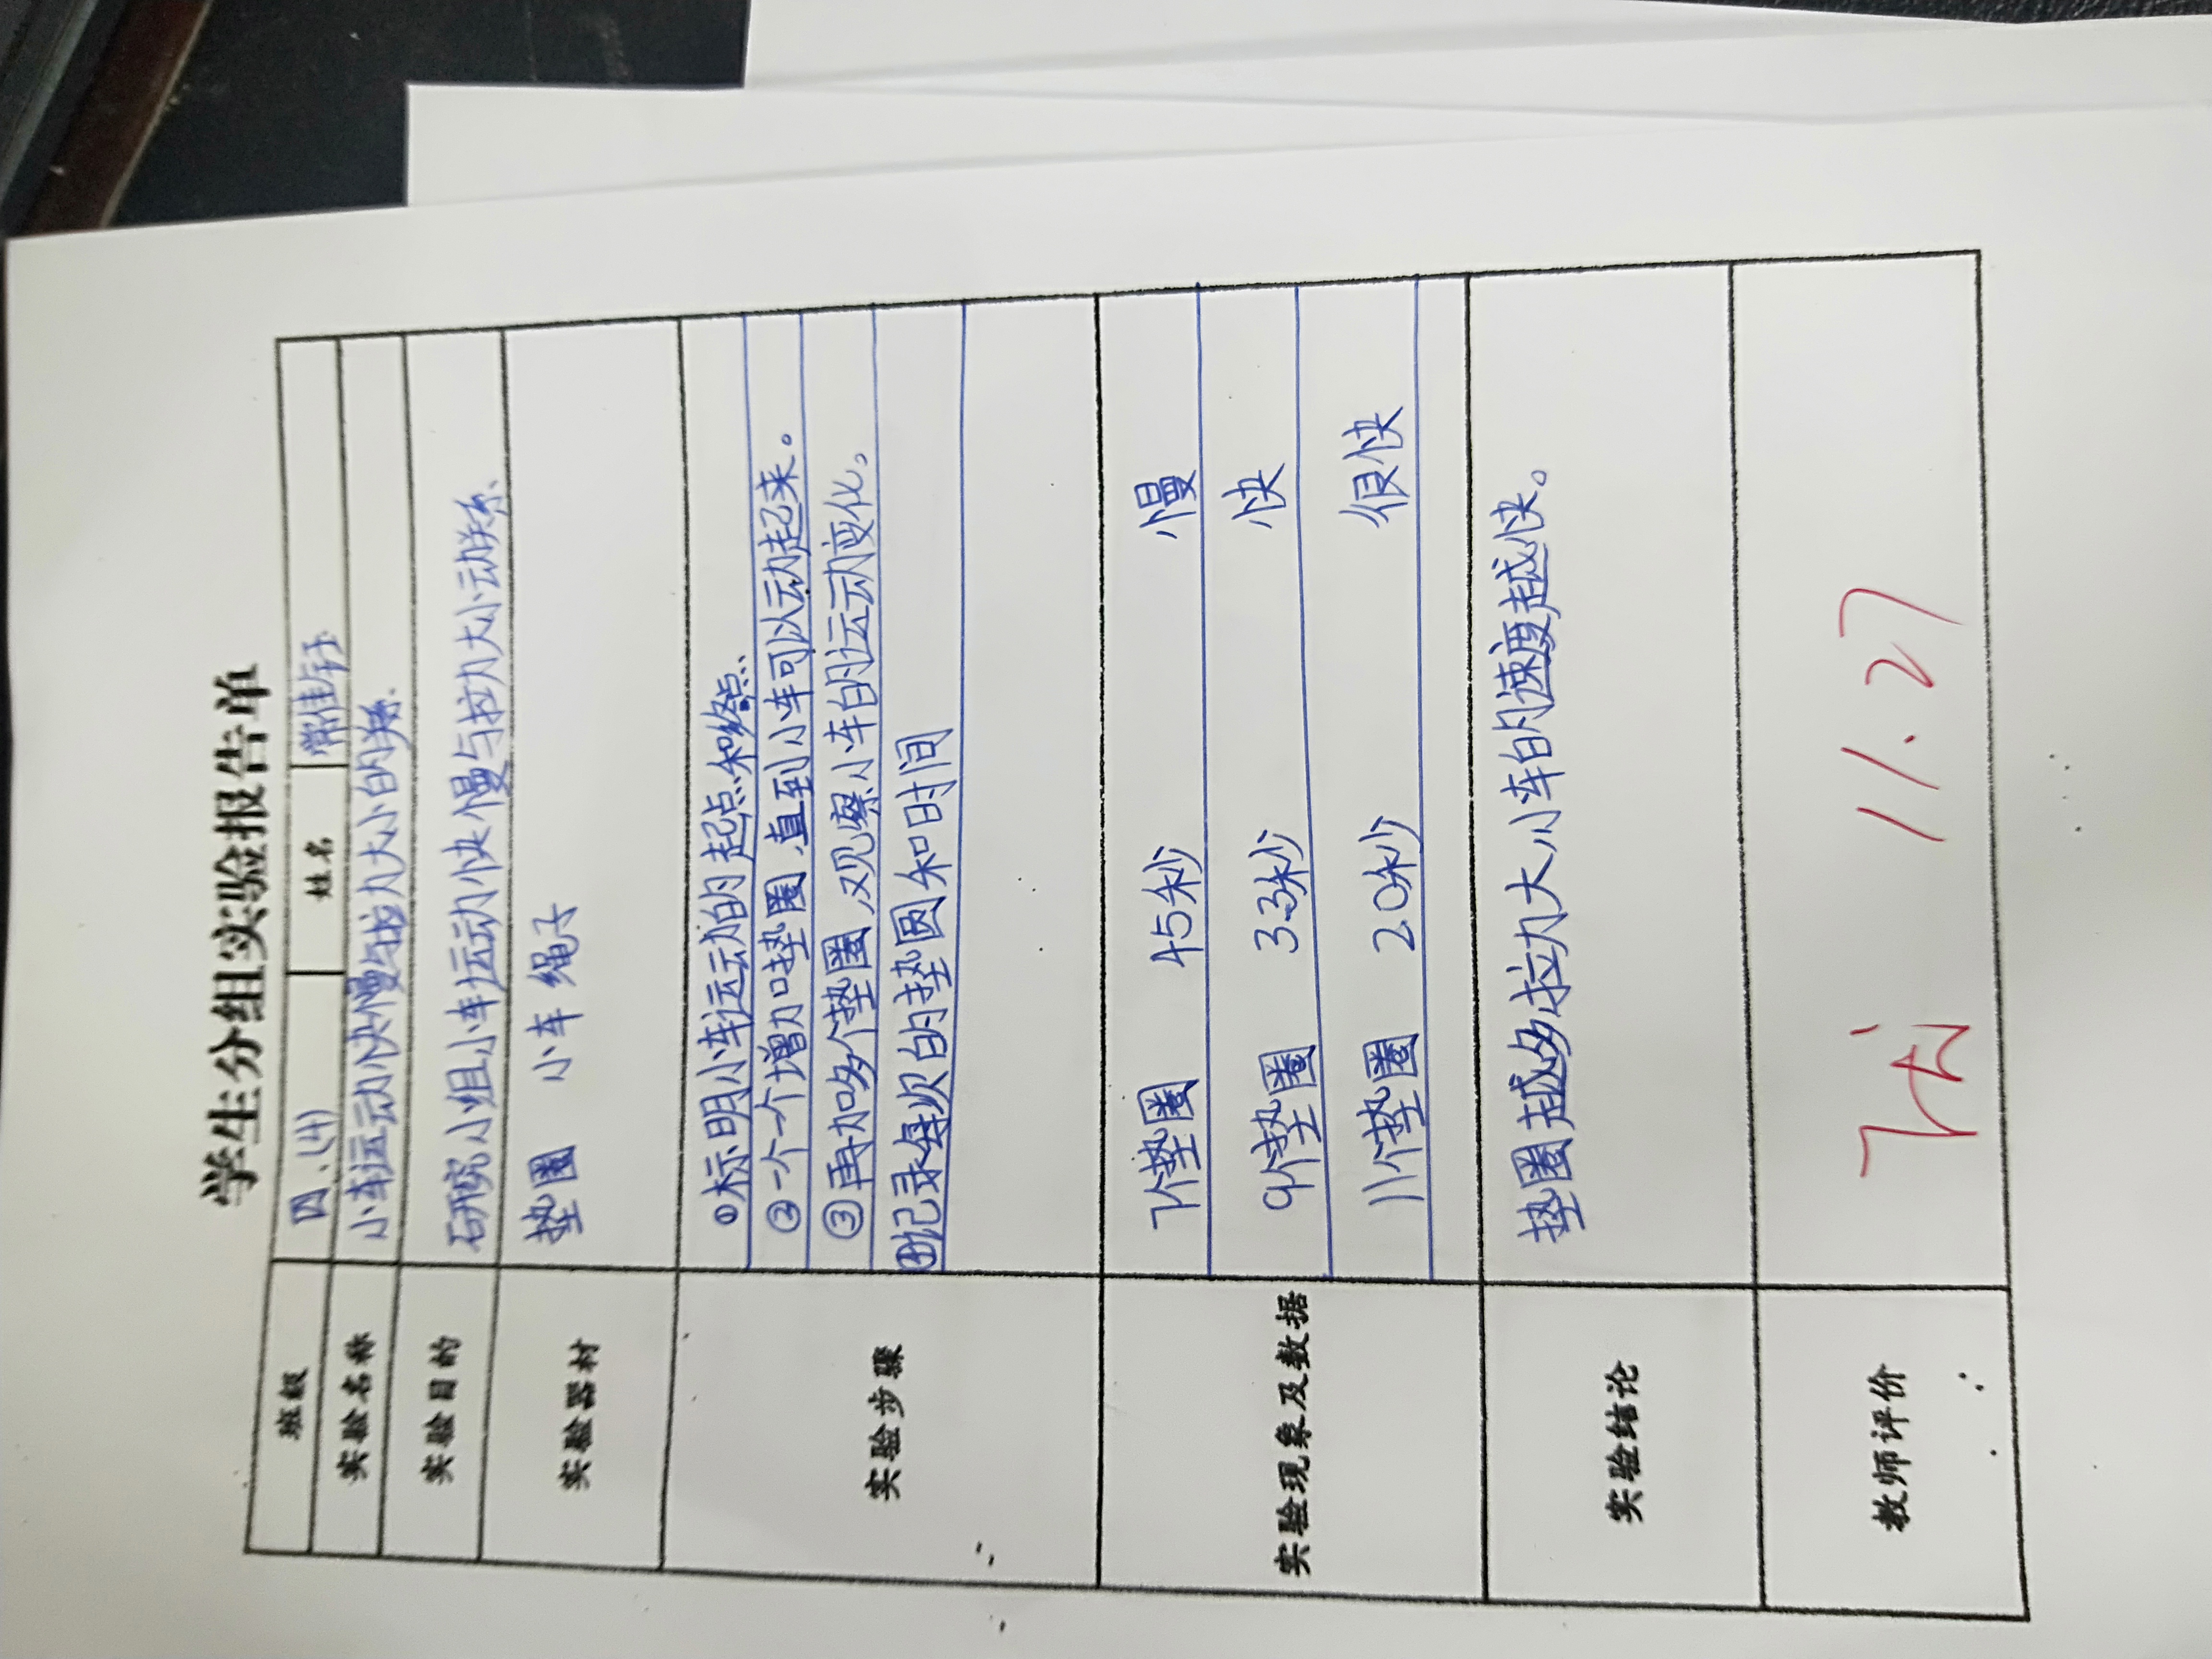 学生分组实验报告单
班级 四、(4) 姓名 常佳钰
实验名称 小车运动快慢与拉力大小的关系.
实验目的 研究小组小车运动快慢与拉力大小动关系.
实验器材 垫圈 小车 绳子
实验步骤
①标明小车运动的起点和终点.
②一个一个增加垫圈,直到小车可以动起来。
③再加多个垫圈,观察小车的运动变化。
④记录每次的垫圆和时间
实验现象及数据
7个垫圈 45秒 慢
9个垫圈 33秒 快
11个垫圈 20秒 很快
实验结论 垫圈越多拉力大,小车的速度越快。
教师评价 11.27